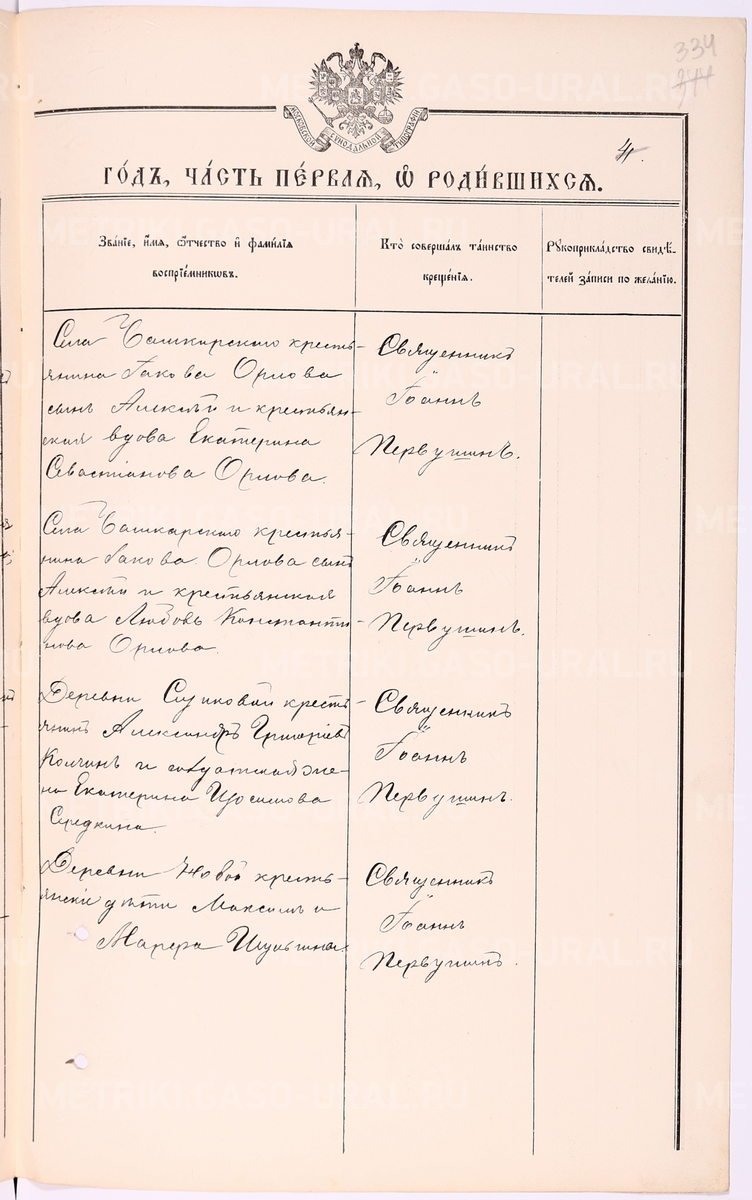 334
344
МОСКОВСКОЙ СѴНОДАЛЬНОЙ ТИПОГРАФІИ
4.
ГО́ДЪ, ЧА́СТЬ ПЕ́РВАЯ, Ѽ РОДИ́ВШИХСЯ.
Зва́нїе, и҆́мѧ, ѻ҆́тчество и҆ фами́лїѧ
воспрїе́мникѡвъ.
Кто̀ соверша́лъ та́инство
креще́нїѧ.
Рꙋкоприкла́дство свидѣ́-
телей за́писи по жела́нїю.
Села Чашкарскаго кресть-
янина Іакова Орлова
сынъ Алексѣй и крестьян-
ская вдова Екатерина
Севастіанова Орлова.
Священникъ
Іоаннъ
Первушинъ.
Села Чашкарскаго крестья-
нина Іакова Орлова сынъ
Алексѣй и крестьянская
вдова Любовь Константи-
нова Орлова.
Священникъ
Іоаннъ
Первушинъ.
Деревни кресть-
янинъ Александръ Григоріевъ
Колчинъ и солдатская же-
на Екатерина Зосимова
Середкина.
Священникъ
Іоаннъ
Первушинъ.
Деревни Новой кресть-
янскіе дѣти Максимъ и
Марѳа
Священникъ
Іоаннъ
Первушинъ.
METRIKI.GASO-URAL.RU